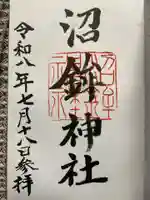 沼鉾神社
令和八年七月十八日参拝